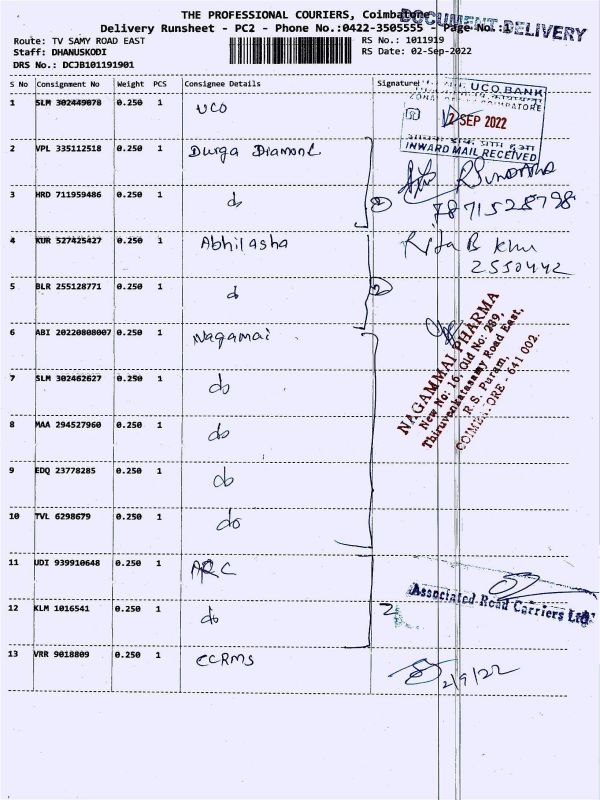 THE PROFESSIONAL COURIERS, Coimbatore
DOCUMENT DELIVERY
Delivery Runsheet - PC2 - Phone No.:0422-3505555 - Page No.:1
Route: TV SAMY ROAD EAST RS No.: 1011919
Staff: DHANUSKODI RS Date: 02-Sep-2022
DRS No.: DCJB101191901
S No Consignment No Weight PCS Consignee Details Signature
1 SLM 302449078 0.250 1 UCO
UCO BANK
2 SEP 2022
INWARD MAIL RECEIVED
2 VPL 335112518 0.250 1 Durga Diamond
3 HRD 711959486 0.250 1 do 2 7871528798
4 KUR 527425427 0.250 1 Abhilasha Rita B
2550442
5 BLR 255128771 0.250 1 do 2
6 ABI 20220808007 0.250 1 Nagamai
NAGAMMAI PHARMA
New No: 16, Old No: 289,
Thiruvenkatasamy Road East,
R.S. Puram,
COIMBATORE - 641 002.
7 SLM 302462627 0.250 1 do
8 MAA 294527960 0.250 1 do
9 EDQ 23778285 0.250 1 do
10 TVL 6298679 0.250 1 do
11 UDI 939910648 0.250 1 ARC
Associated Road Carriers Ltd
12 KLM 1016541 0.250 1 do 2
13 VRR 9018809 0.250 1 CCRMS
2/9/22